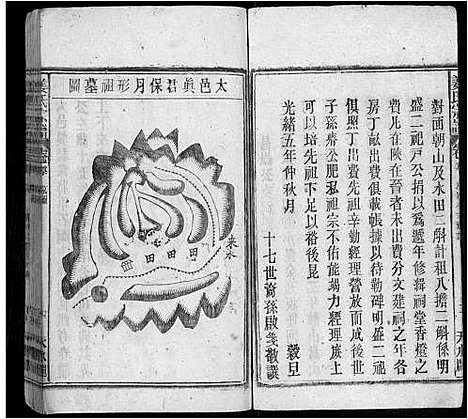 對面朝山及水田二斛計租八擔二斛係明
盛二祀戶公捐以爲遞年修緝祠堂香燈之
費凡在陝在晉者未出費分文建祠之年各
房丁出費俱載帳據以待勒碑明盛二公後
俱照丁出費先祖辛勤經理營放而成後世
子孫齊公肥私祖宗不佑能竭力經理庶上
可以培先祖下足以裕後昆
光緒五年仲秋月
穀旦
十七世裔孫啟箋敬譔
太邑眞君保月形祖墓圖
來水
田
田
田
姜氏宗譜